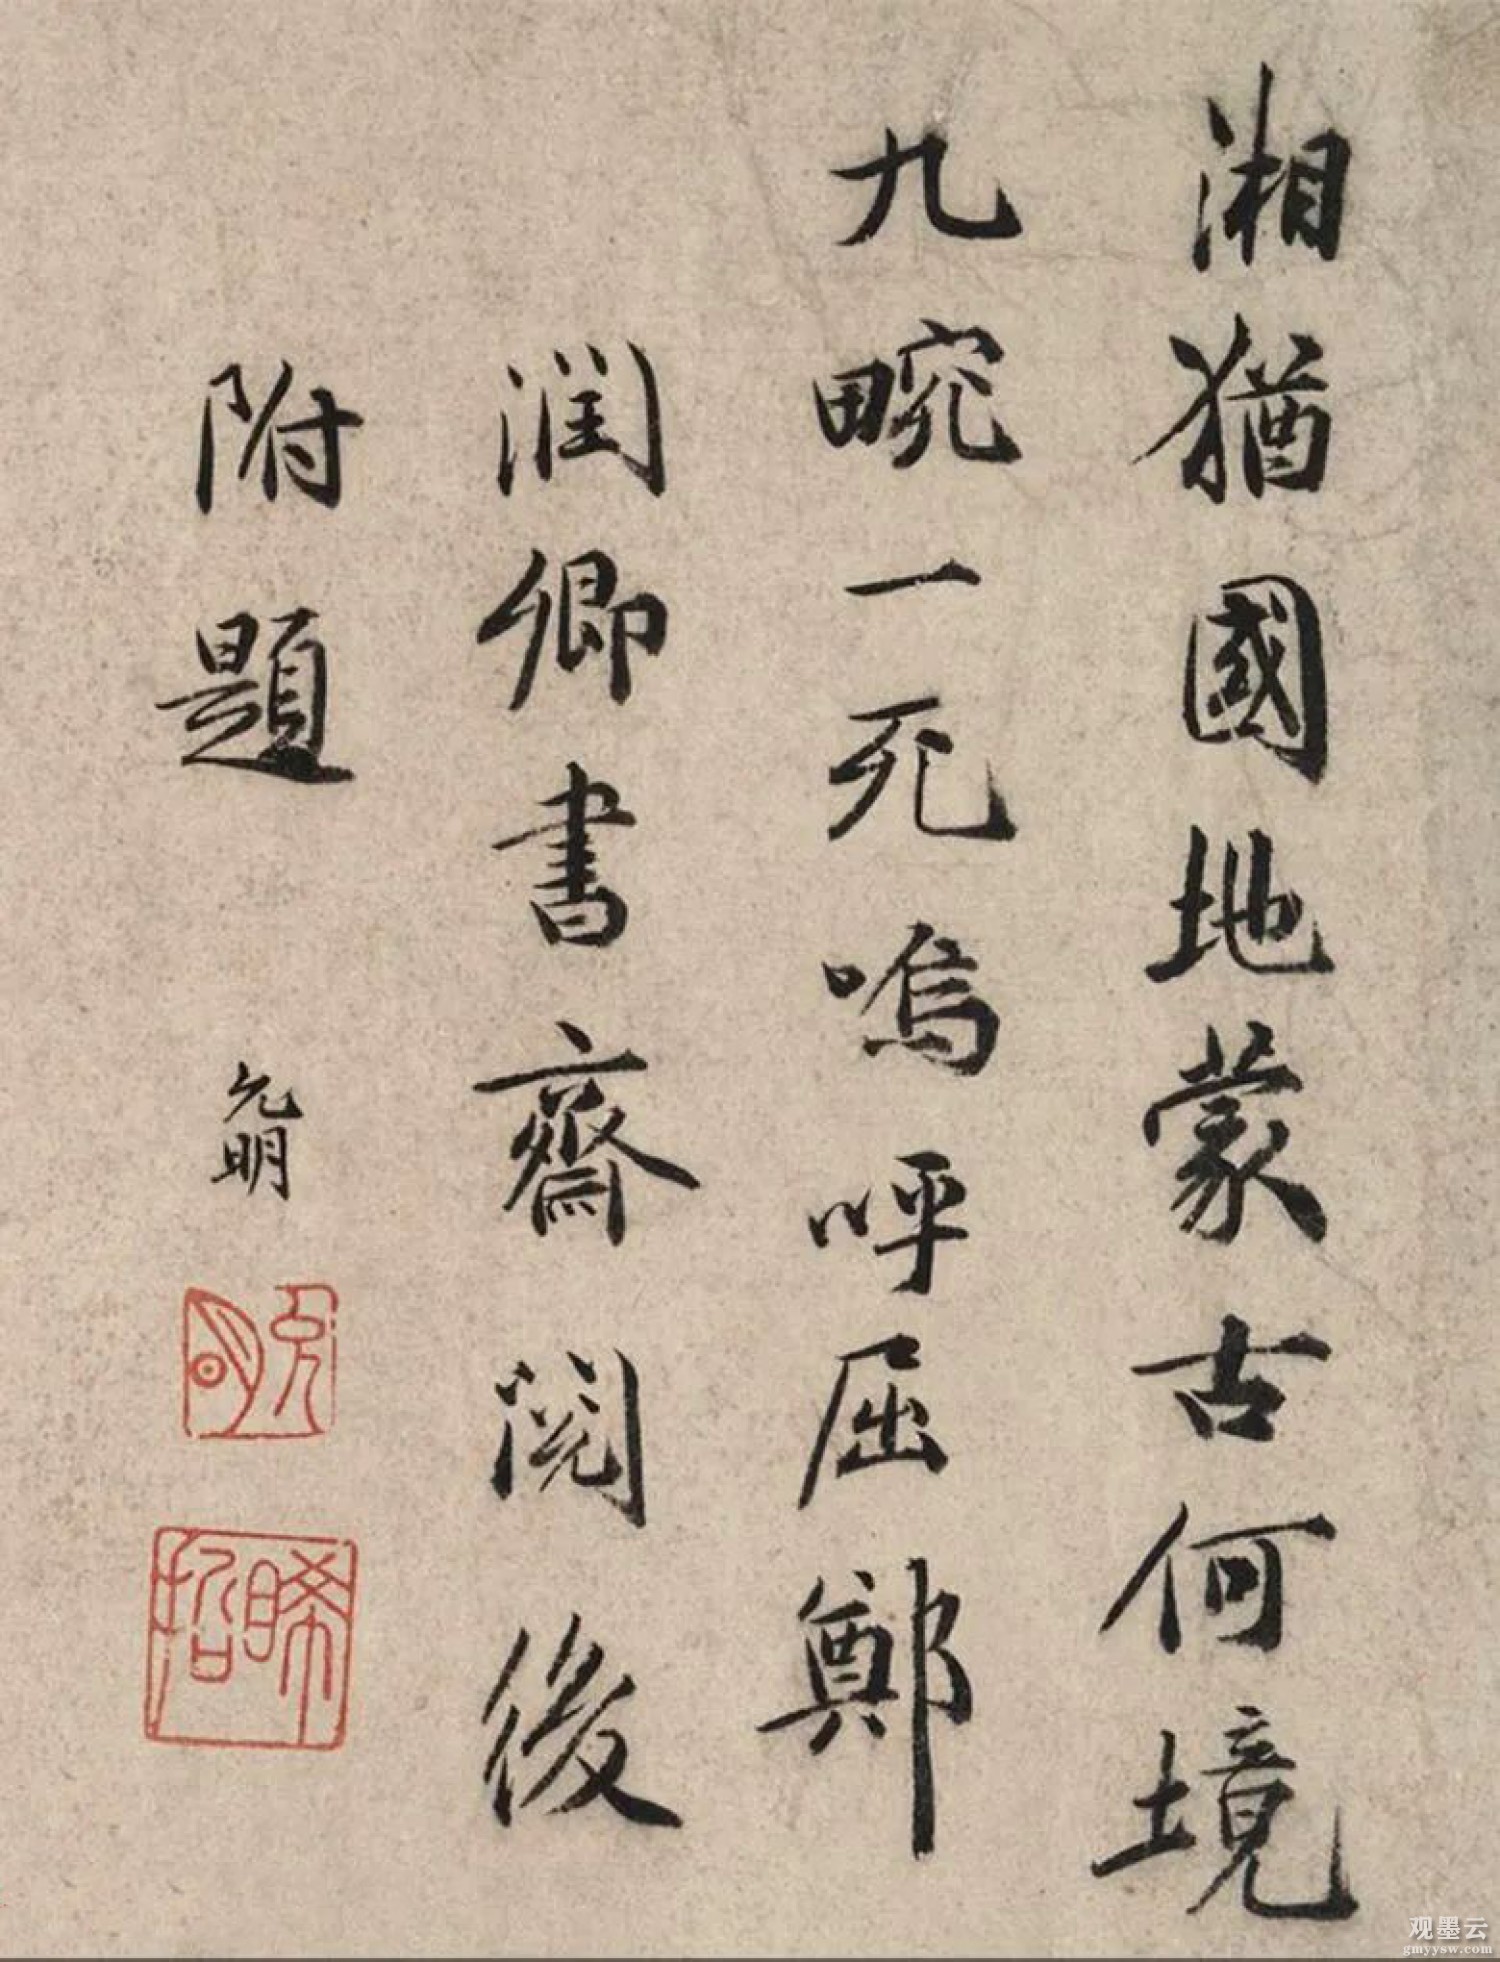 湘猶國地蒙古何境
九畹一死嗚呼屈鄭
潤卿書齋閱後
附題
允明
允明
晞哲
观墨云
gmyysw.com